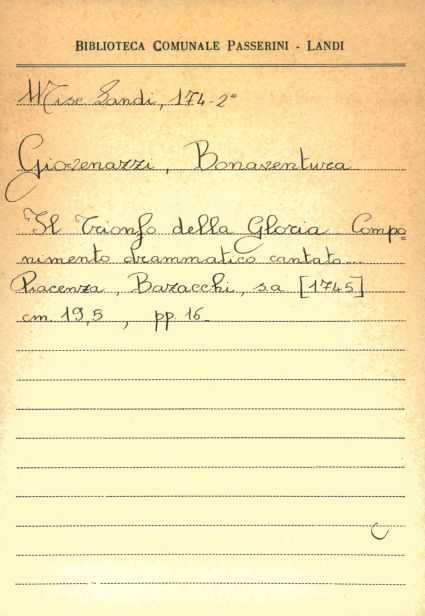 BIBLIOTECA COMUNALE PASSERINI - LANDI
Misc Landi, 174-2°
Giovenazzi, Bonaventura
Il Trionfo della Gloria. Compo=
nimento drammatico cantato...
Piacenza, Bazacchi, s.a [1745]
cm. 19,5, pp. 16.